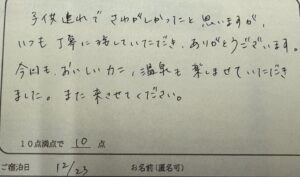 子供連れでさわがしかったと思いますが、
いつも丁寧に接していただき、ありがとうございます。
今回も、おいしいカニ、温泉も楽しませていただき
ました。また来させてください。
10点満点で 10 点
ご宿泊日 12/23 お名前(匿名可)